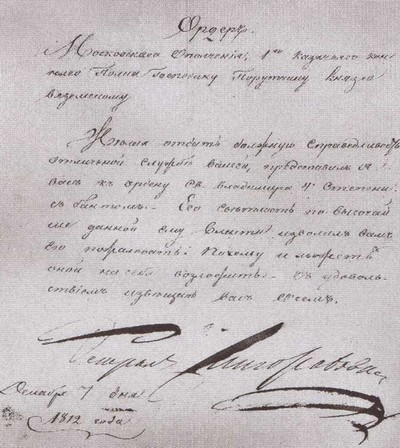 Ордеръ.
Московскаго Ополченія, 1го Казачьяго кон-
наго Полка Господину Порутчику Князю
Вяземскому
Желая отдать должную справедливость
отличной службѣ вашей, представилъ я
васъ къ ордену Св. Владимира 4й степени
съ бантомъ. Его свѣтлость по высочай
ше данной ему власти изволилъ вамъ
его пожаловать: Почему и можете
оной на себя возложить. Съ удоволь-
ствіемъ извѣщаю васъ о семъ.
Генералъ
Декабря 7 дня
1812 года